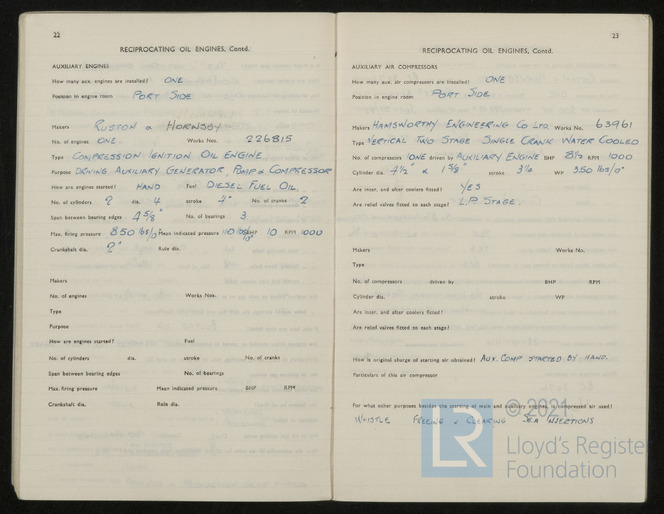 22
RECIPROCATING OIL ENGINES, Contd.
AUXILIARY ENGINES
How many aux. engines are installed? ONE
Position in engine room PORT SIDE
Makers RUSTON & HORNSBY
No. of engines ONE Works Nos. 226815
Type COMPRESSION IGNITION OIL ENGINE
Purpose DRIVING AUXILIARY GENERATOR, PUMP & COMPRESSOR
How are engines started? HAND Fuel DIESEL FUEL OIL.
No. of cylinders 2 dia. 4 stroke 4" No. of cranks 2
Span between bearing edges 4 5/8" No. of bearings 3
Max. firing pressure 850 lbs/□" Mean indicated pressure 110 lbs/□" BHP 10 RPM 1000
Crankshaft dia. 2" Rule dia.
Makers
No. of engines Works Nos.
Type
Purpose
How are engines started? Fuel
No. of cylinders dia. stroke No. of cranks
Span between bearing edges No. of bearings
Max. firing pressure Mean indicated pressure BHP RPM
Crankshaft dia. Rule dia.
23
RECIPROCATING OIL ENGINES, Contd.
AUXILIARY AIR COMPRESSORS
How many aux. air compressors are installed? ONE
Position in engine room PORT SIDE
Makers HAMSWORTHY ENGINEERING CO LTD. Works No. 63961
Type VERTICAL TWO STAGE SINGLE CRANK WATER COOLED
No. of compressors ONE driven by AUXILIARY ENGINE BHP 8 1/2 RPM 1000
Cylinder dia. 4 1/2 & 1 5/8" stroke WP 350 lbs/□"
Are inter. and after coolers fitted? YES
Are relief valves fitted to each stage? L.P. STAGE.
Makers Works No.
Type
No. of compressors driven by BHP RPM
Cylinder dia. stroke WP
Are inter. and after coolers fitted?
Are relief valves fitted to each stage?
How is original charge of starting air obtained? AUX. COMP STARTED BY HAND.
Particulars of this air compressor
For what other purposes besides the starting of main and auxiliary engines is compressed air used?
WHISTLE FREEING & CLEARING SEA INJECTIONS
© 2021
LR
Lloyd's Register
Foundation